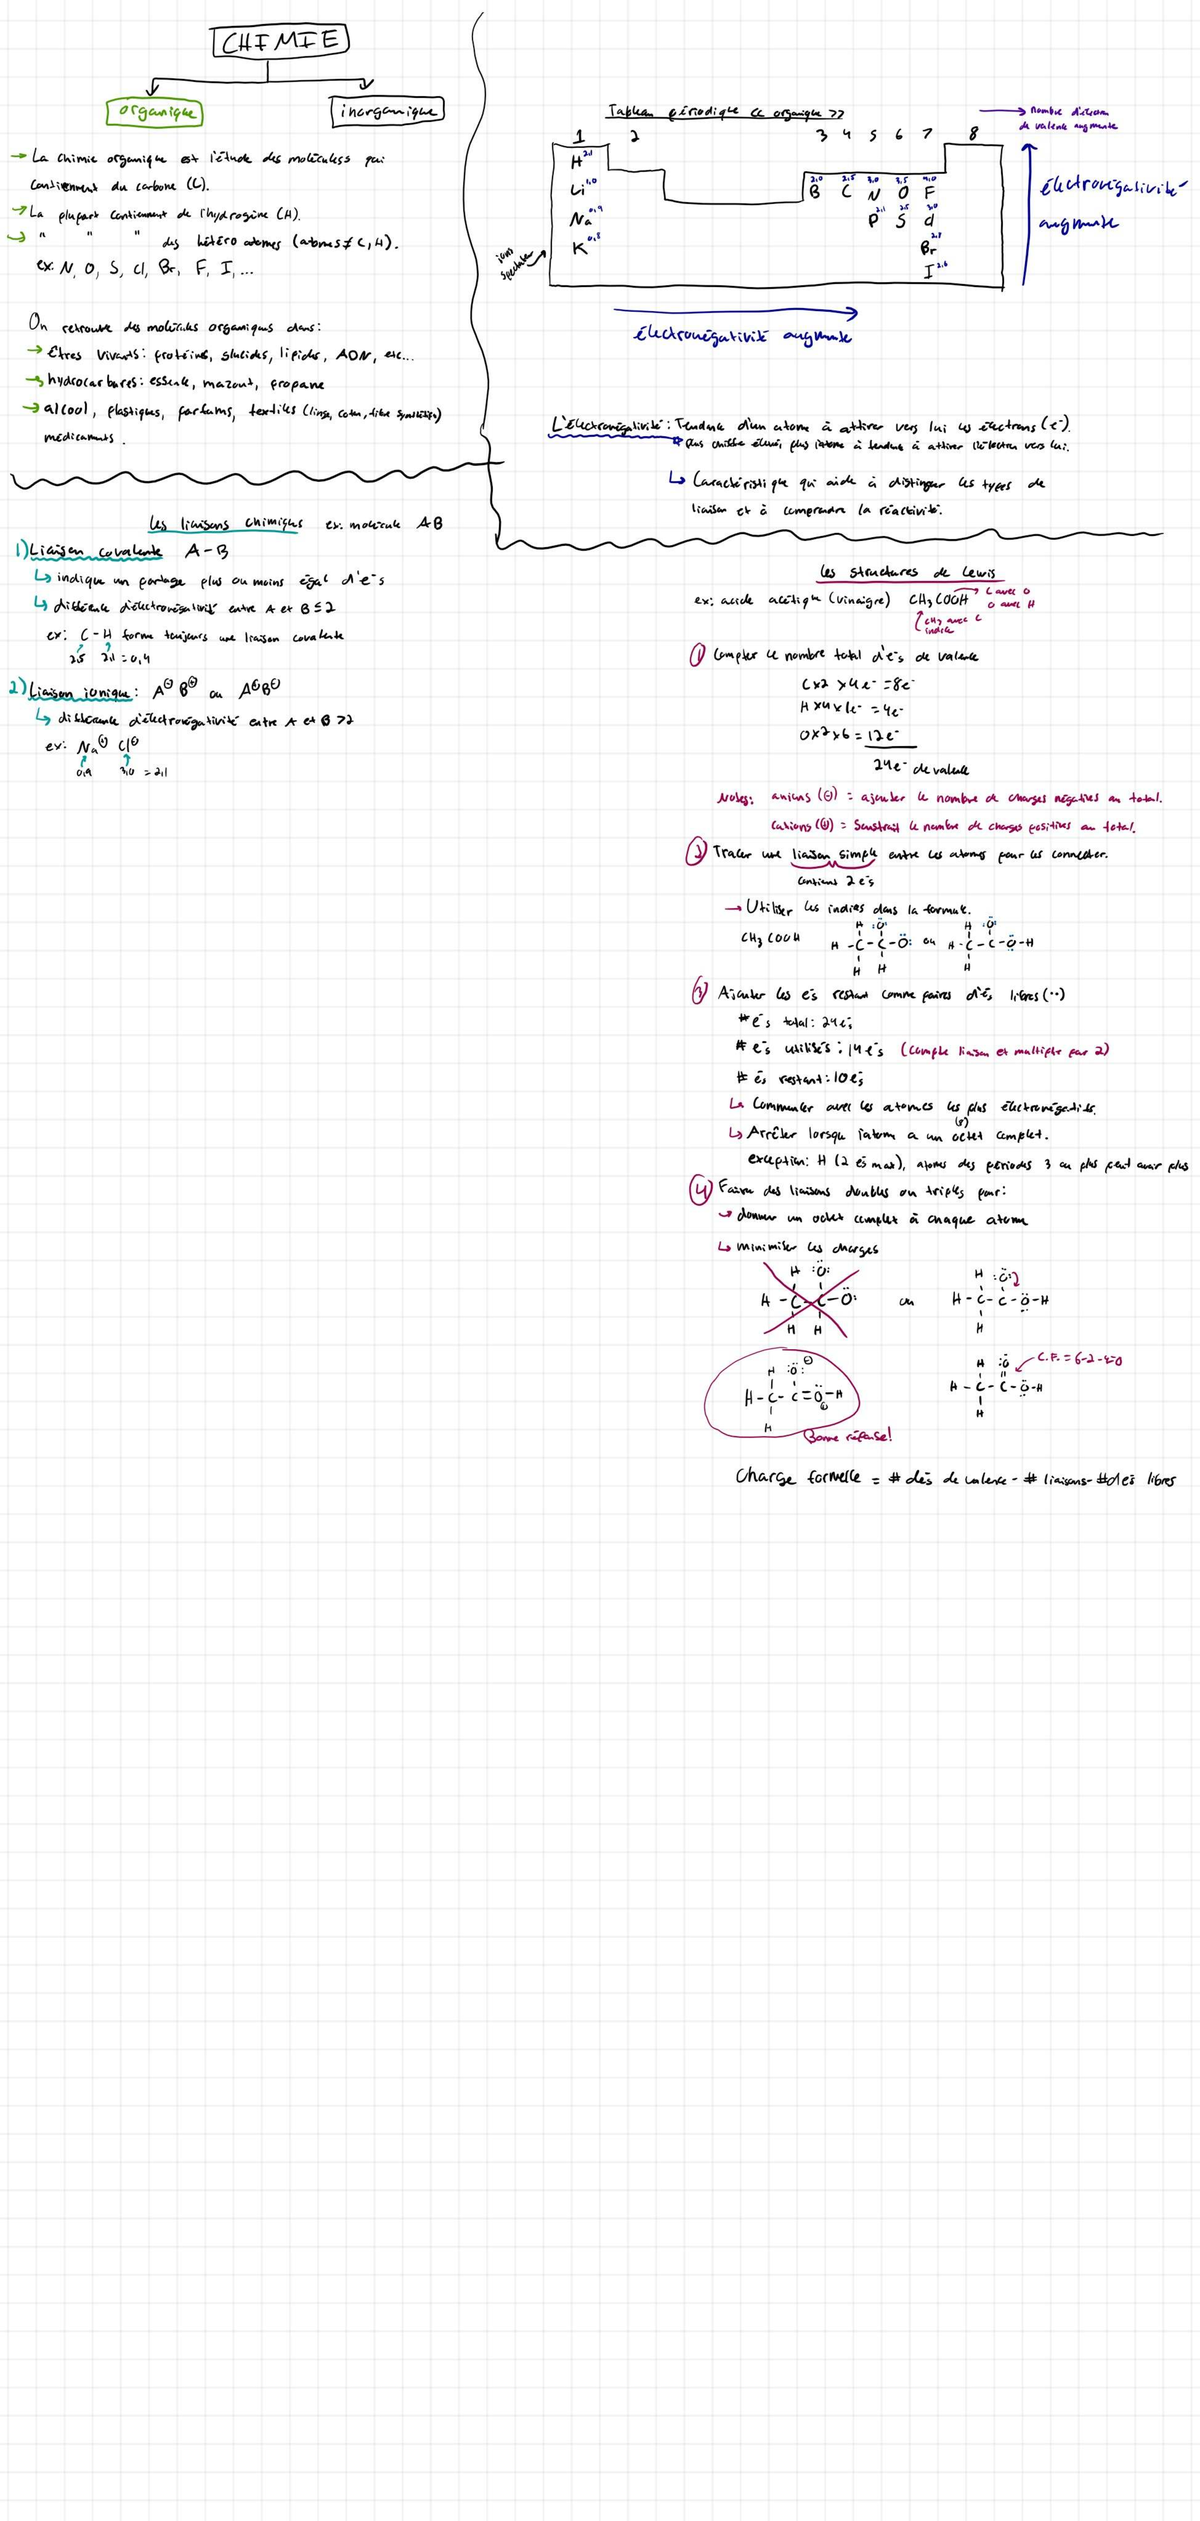 CHIMIE
organique
inorganique
→ La chimie organique est l'étude des molécules qui
contiennent du carbone (C).
→ La plupart contiennent de l'hydrogène (H).
→ " " " des hétéro atomes (atomes ≠ C, H).
ex: N, O, S, Cl, Br, F, I, ...
On retrouve des molécules organiques dans:
→ Êtres vivants: protéines, glucides, lipides, ADN, etc...
→ hydrocarbures: essence, mazout, propane
→ alcool, plastiques, parfums, textiles (linge, coton, fibre synthétique)
médicaments.
Tableau périodique << organique >>
→ nombre d'électron
de valence augmente
1 2 3 4 5 6 7 8
H 2,1
Li 1,0 B 2,0 C 2,5 N 3,0 O 3,5 F 4,0
Na 0,9 P 2,1 S 2,5 Cl 3,0
K 0,8 Br 2,8
I 2,6
ions
spectateur
électronégativité
augmente
électronégativité augmente
L'électronégativité: Tendance d'un atome à attirer vers lui les électrons (e⁻).
* plus chiffre élevé, plus l'atome à tendance à attirer l'électron vers lui.
↳ Caractéristique qui aide à distinguer les types de
liaison et à comprendre la réactivité.
Les liaisons chimiques ex: molécule AB
1) Liaison covalente A-B
↳ indique un partage plus ou moins égal d'e⁻s
↳ différence d'électronégativité entre A et B ≤ 2
ex: C-H forme toujours une liaison covalente
2,5 2,1 = 0,4
2) Liaison ionique: A⊖ B⊕ ou A⊕B⊖
↳ différence d'électronégativité entre A et B > 2
ex: Na⊕ Cl⊖
0,9 3,0 = 2,1
Les structures de Lewis
ex: acide acétique (vinaigre) CH₃COOH
C avec O
O avec H
CH₃ avec C
indice
① Compter le nombre total d'e⁻s de valence
C x2 x4e⁻ = 8e⁻
H x4x1e⁻ = 4e⁻
O x2x6 = 12e⁻
24e⁻ de valence
Notes: anions (⊖) = ajouter le nombre de charges négatives au total.
Cations (⊕) = Soustrait le nombre de charges positives au total.
② Tracer une liaison simple entre les atomes pour les connecter.
Contient 2e⁻s
→ Utiliser les indices dans la formule.
H :Ö:
CH₃COOH H-C-C-Ö: ou H-C-C-Ö-H
H H H
③ Ajouter les e⁻s restant comme paires d'e⁻s libres (··)
# e⁻s total: 24e⁻s
# e⁻s utilisés: 14e⁻s (compte liaison et multiplie par 2)
# e⁻s restant: 10e⁻s
↳ Commencer avec les atomes les plus électronégatifs.
↳ Arrêter lorsque l'atome a un octet complet.
(8)
exception: H (2 e⁻s max), atomes des périodes 3 ou plus peut avoir plus
④ Faire des liaisons doubles ou triples pour:
→ donner un octet complet à chaque atome
↳ minimiser les charges
H :Ö: H :Ö:
H-C-C-Ö: ou H-C-C-Ö-H
H H H
H :Ö:⊖ H :O C.F. = 6-2-4=0
H-C-C=Ö-H H-C-C-Ö-H
⊕
H H
Bonne réponse!
Charge formelle = # d'e⁻s de valence - # liaisons - # d'e⁻s libres